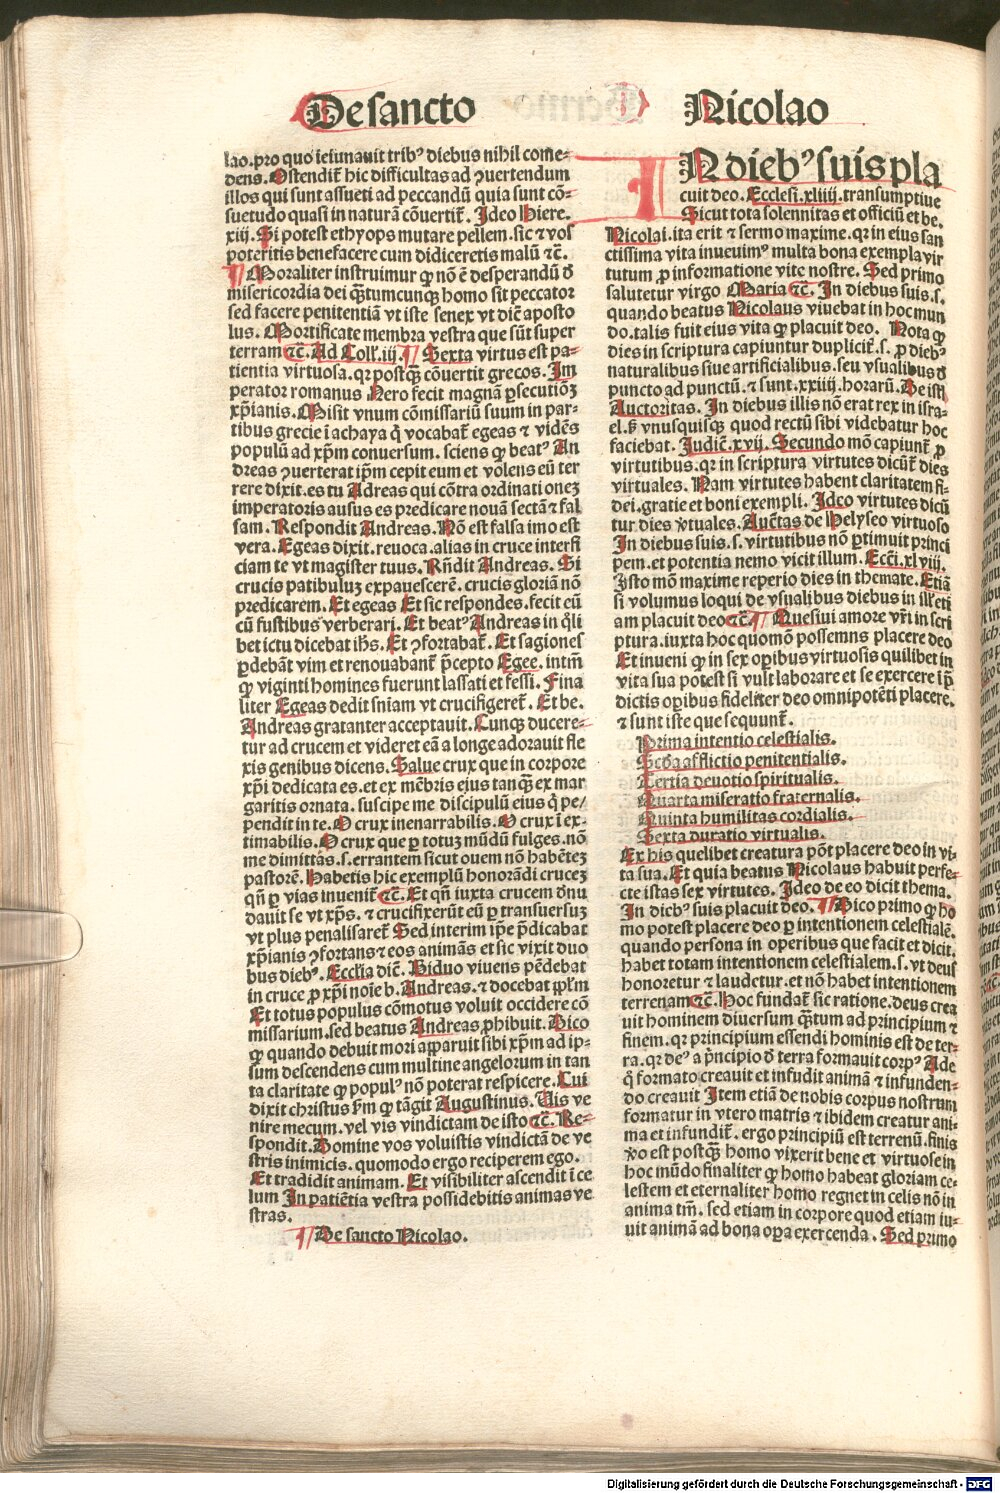 De sancto Nicolao
lao.pro quo ieiunauit tribꝰ diebus nihil come⸗
dens. Ostendit᷑ hic difficultas ad ꝯuertendum
illos qui sunt assueti ad peccandū quia sunt cō⸗
suetudo quasi in naturā cōuertit᷑. Ideo Hiere.
xiij. Si potest ethyops mutare pellem. sic ⁊ vos
poteritis benefacere cum didiceretis malū ⁊c̄.
¶ Moraliter instruimur ꝙ nō ē desperandū ð
misericordia dei qȝtumcunqȝ homo sit peccator
sed facere penitentiā vt iste senex vt dic̄ aposto
lus. Mortificate membra vestra que sūt super
terram ⁊c̄. Ad Coll'. iij. ¶ Sexta virtus est pa⸗
tientia virtuosa. qꝛ postqȝ cōuertit grecos. Im
perator romanus Nero fecit magnā ꝑsecutiōȝ
xp̄ianis. Misit vnum cōmissariū suum in par⸗
tibus grecie ī achaya q̇ vocabat᷑ egeas ⁊ vidēs
populū ad xp̄m conuersum. sciens ꝙ beatꝰ An
dreas ꝯuerterat ip̄m cepit eum et volens eū ter
rere dixit. es tu Adreas qui cōtra ordinationeȝ
imperatoris ausus es predicare nouā sectā ⁊ fal
sam. Respondit Andreas. Nō est falsa imo est
vera. Egeas dixit. reuoca. alias in cruce interfi
ciam te vt magister tuus. Rn̄dit Andreas. Si
crucis patibuluȝ expauescerē. crucis gloriā nō
predicarem. Et egeas Et sic respondes. fecit eū
cū fustibus verberari. Et beatꝰ Andreas in q̇li
bet ictu dicebat ih̄s. Et ꝯfortabat᷑. Et sagiones
ꝑdebāt vim et renouabant᷑ p̄cepto Egee. intm̄
ꝙ viginti homines fuerunt lassati et fessi. Fina
liter Egeas dedit sniam vt crucifigeret᷑. Et be.
Andreas gratanter acceptauit. Cunqȝ ducere⸗
tur ad crucem et videret eā a longe adorauit fle
xis genibus dicens. Salue crux que in corpore
xp̄i dedicata es. et ex mēbris eius tanqȝ ex mar
garitis ornata. suscipe me discipulū eius q̇ pe/
pendit in te. O crux inenarrabilis. O crux ī ex⸗
timabilis. O crux que ꝑ totuȝ mūdū fulges. nō
me dimittas. s. errantem sicut ouem nō habēteȝ
pastorē. Habetis hic exemplū honorādi cruceȝ
qn̄ ꝑ vias inuenit᷑ ⁊c̄. Et qn̄ iuxta crucem dn̄u
dauit se vt xp̄s. ⁊ crucifixerūt eū ꝑ transuersuȝ
vt plus penalisaret᷑ Sed interim ip̄e p̄dicabat
xp̄ianis ꝯfortans ⁊ eos animās et sic vixit duo
bus diebꝰ. Ecclīa dic̄. Biduo viuens pēdebat
in cruce ꝓ xp̄i noīe b. Andreas. ⁊ docebat ppl'm
Et totus populus cōmotus voluit occidere cō
missarium. sed beatus Andreas ꝓhibuit. Dico
ꝙ quando debuit mori apparuit sibi xp̄m ad ip⸗
sum descendens cum multine angelorum in tan
ta claritate ꝙ populꝰ nō poterat respicere. Cui
dixit christus ẜm ꝙ tāgit Augustinus. Vis ve
nire mecum. vel vis vindictam de isto ⁊c̄. Re⸗
spondit. Domine vos voluistis vindictā de ve
stris inimicis. quomodo ergo reciperem ego.
Et tradidit animam. Et visibiliter ascendit ī ce
lum In patiētia vestra possidebitis animas ve
stras.
¶ De sancto Nicolao.
IN diebꝰ suis pla
cuit deo. Ecclesi. xliiij. transumptiue
Sicut tota solennitas et officiū et be.
Nicolai. ita erit ⁊ sermo maxime. qꝛ in eius san
ctissima vita inueuimꝰ multa bona exempla vir
tutum ꝓ informatione vite nostre. Sed primo
salutetur virgo Maria ⁊c̄. In diebus suis. s.
quando beatus Nicolaus viuebat in hoc mun
do. talis fuit eius vita ꝙ placuit deo. Nota ꝙ
dies in scriptura capiuntur duplicit᷑. s. ꝓ diebꝰ
naturalibus siue artificialibus. seu vsualibus ð
puncto ad punctū. ⁊ sunt. xxiiij. horarū. De istꝭ
Auctoritas. In diebus illis nō erat rex in isra⸗
el. sꝫ vnusquisqȝ quod rectū sibi videbatur hoc
faciebat. Judic̄. xvij. Secundo mō capiunt᷑ ꝓ
virtutibus. qꝛ in scriptura virtutes dicūt᷑ dies
virtuales. Nam virtutes habent claritatem fi⸗
dei. gratie et boni exempli. Ideo virtutes dicū
tur dies v̓tuales. Auc̄tas de Helyseo virtuoso
In diebus suis. s. virtutibus nō ꝑtimuit princi
pem. et potentia nemo vicit illum. Ecc̄i. xlviij.
Isto mō maxime reperio dies in themate. Etiā
si volumus loqui de vsualibus diebus in ill' eti
am placuit deo ⁊c̄. ¶ Quesiui amore vr̄i in scri
ptura. iuxta hoc quomō possemns placere deo
Et inueni ꝙ in sex oꝑibus virtuosis quilibet in
vita sua potest si vult laborare et se exercere ip̄
dictis oꝑibus fideliter deo omnipotēti placere.
⁊ sunt iste que sequunt᷑.
Prima intentio celestialis.
Scd̄a afflictio penitentialis.
Tertia deuotio spiritualis.
Quarta miseratio fraternalis.
Quinta humilitas cordialis.
Sexta duratio virtualis.
Ex his quelibet creatura pōt placere deo in vi⸗
ta sua. Et quia beatus Nicolaus habuit perfe⸗
cte istas sex virtutes. Ideo de eo dicit thema.
In diebꝰ suis placuit deo. ¶ Dico primo ꝙ ho
mo potest placere deo ꝑ intentionem celestialē.
quando persona in operibus que facit et dicit.
habet totam intentionem celestialem. s. vt deus
honoretur ⁊ laudetur. et nō habet intentionem
terrenam ⁊c̄. Hoc fundat᷑ sic ratione. deus crea
uit hominem diuersum qȝtum ad principium ⁊
finem. qꝛ principium essendi hominis est de ter⸗
ra. qꝛ deꝰ a p̄ncipio ð terra formauit corpꝰ Ade
q̇ formato creauit et infudit animā ⁊ infunden⸗
do creauit Item etiā de nobis corpus nostrum
formatur in vtero matris ⁊ ibidem creatur ani⸗
ma et infundit᷑. ergo principiū est terrenū. finis
v̓o est postqȝ homo vixerit bene et virtuose in
hoc mūdo finaliter ꝙ homo habeat gloriam ce⸗
lestem et eternaliter homo regnet in celis nō in
anima tm̄. sed etiam in corpore quod etiam iu⸗
uit animā ad bona oꝑa exercenda. Sed primo
Digitalisierung gefördert durch die Deutsche Forschungsgemeinschaft - DFG